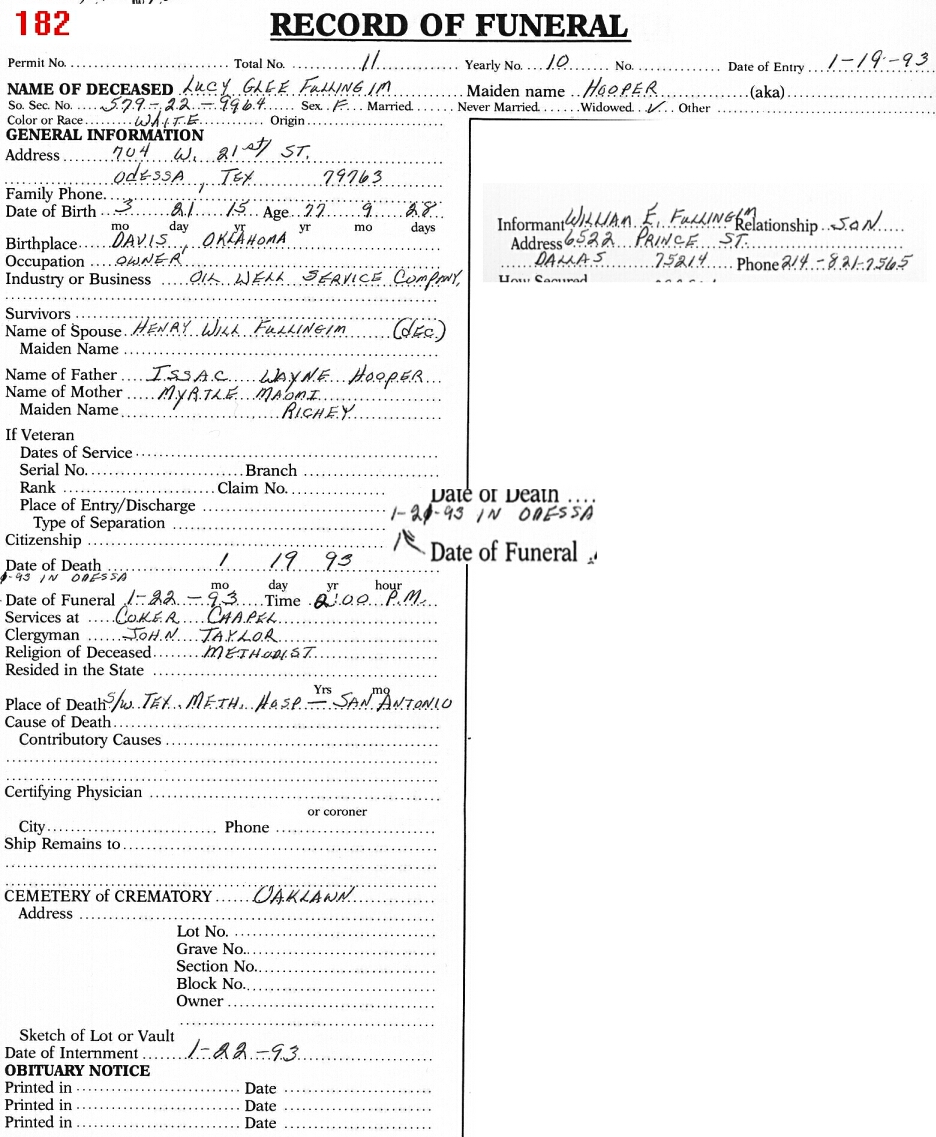 182
RECORD OF FUNERAL
Permit No. Total No. 11 Yearly No. 10 No. Date of Entry 1-19-93
NAME OF DECEASED LUCY GLEE FULLINGIM Maiden name HOOPER (aka)
So. Sec. No. 579-22-9964 Sex F Married Never Married Widowed ✓ Other
Color or Race WHITE Origin
GENERAL INFORMATION
Address 704 W. 21st ST.
ODESSA, TEX 79763
Family Phone
Date of Birth 3 21 15 Age 77 9 28
mo day yr yr mo days
Birthplace DAVIS, OKLAHOMA
Occupation OWNER
Industry or Business OIL WELL SERVICE COMPANY,
Informant WILLIAM E. FULLINGIM Relationship SON
Address 6522 PRINCE ST.
DALLAS 75214 Phone 214-821-7565
How Secured
Survivors
Name of Spouse HENRY WILL FULLINGIM (dec.)
Maiden Name
Name of Father ISSAC WAYNE HOOPER
Name of Mother MYRTLE MAOMI
Maiden Name RICHEY
If Veteran
Dates of Service
Serial No. Branch
Rank Claim No.
Place of Entry/Discharge
Type of Separation
Citizenship
Date of Death
1-21-93 IN ODESSA
Date of Funeral
Date of Death 1 19 93
-93 IN ODESSA
mo day yr hour
Date of Funeral 1-22-93 Time 2:00 P.M.
Services at COKER CHAPEL
Clergyman JOHN TAYLOR
Religion of Deceased METHODIST
Resided in the State
Yrs mo
Place of Death S/W. TEX. METH. HOSP — SAN ANTONIO
Cause of Death
Contributory Causes
Certifying Physician
or coroner
City Phone
Ship Remains to
CEMETERY of CREMATORY OAKLAWN
Address
Lot No.
Grave No.
Section No.
Block No.
Owner
Sketch of Lot or Vault
Date of Internment 1-22-93
OBITUARY NOTICE
Printed in Date
Printed in Date
Printed in Date